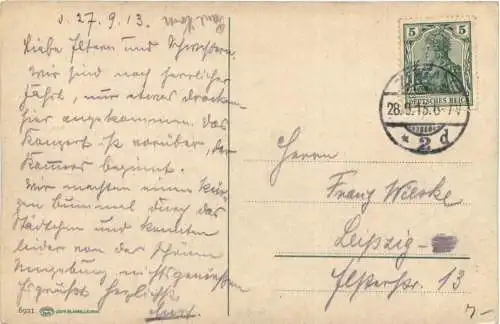 d. 27.9.13.
Liebe Eltern und Schwestern.
Wir sind nach herrlicher
Fahrt, nur etwas
hier angekommen. Das
Konzert ist vorüber, der
Komers beginnt.
Wir machten einen kur-
zen Bummel durch das
Städtchen und konnten
leider von der schönen
Umgebung nichts geniessen
Es grüsst herzlichst
Kurt.
6921
5
DEUTSCHES REICH
28.9.13.6-7V
* 2 d
Herrn
Franz Wieske
Leipzig
Elsterstr. 13